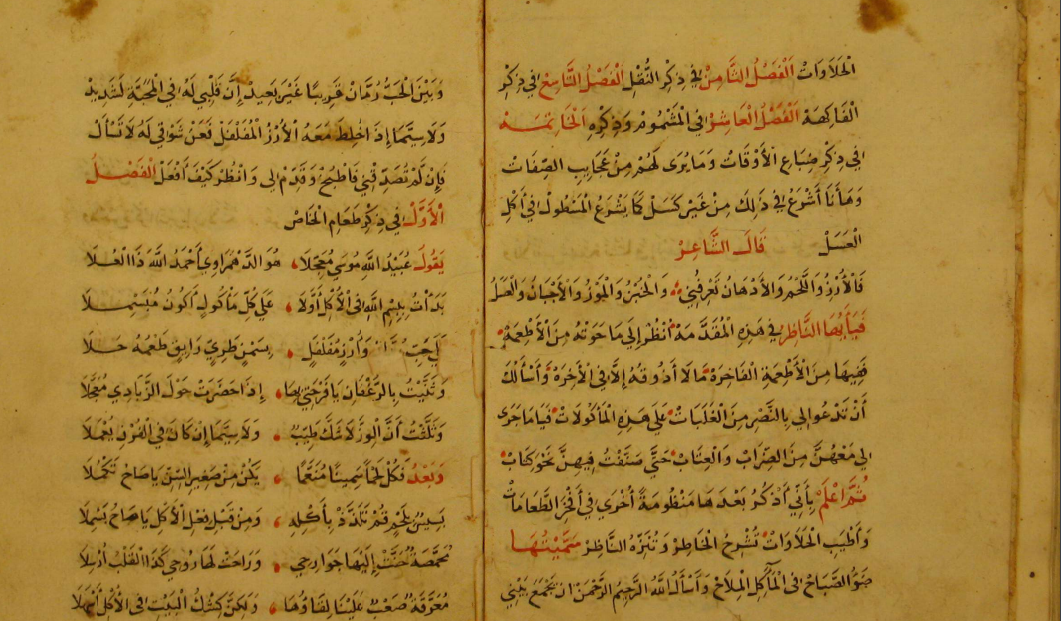 الحلاوات الفصل الثامن في ذكر النقل الفصل التاسع في ذكر
الفاكهة الفصل العاشر في المشموم وذكره الخاتمة
في ذكر ضباع الأوقات وما يرى لهم من عجايب الصفات
وها أنا أشرع في ذلك من غير كسل كما يشرع المسطول في أكل
العسل قال الشاعر
فالأرز واللحم والأدهان تعرفني والخبز والموز والأجبان والعسل
فيا أيها الناظر في هذه المقدمة انظر إلى ما حوته من الأطعمة
ففيها من الأطعمة الفاخرة ما لا أذوقه إلا في الآخرة وأسألك
أن تدعو إلي بالنصر من الغلبات على هذه المأكولات فيا ما جرى
لي معهن من الضراب والعتاب حتى صنفت فيهن نحو كتاب
ثم اعلم بأني أذكر بعدها منظومة أخرى في أفخر الطعامات
وأطيب الحلاوات تشرح الخاطر وتنزه الناظر سميتها
ضوء الصباح في المآكل الملاح وأسأل الله الرحيم الرحمن أن يجمع بيني
وبين الحب رمان قريبا غير بعيد إن قلبي له في المحبة لشديد
ولا سيما إذا خلط معه الأرز المفلفل فعن شوقي له لا تسأل
فإن لم تصدقني فاطبخ وقدم لي وانظر كيف أفعل الفصل
الأول في ذكر طعام الخاص
يقول عبيد الله موسى معجلا هو الدهمراوي أحمد الله ذا العلا
بدأت ببسم الله في الأكل أولا على كل مأكول أكون مبسملا
وأرز مفلفل بسمن طري رايق طعمه حلا
وثنيت بالرغفان يا فرحتي بها إذا حضرت حول الزبادي معجلا
وثلثت أن الوز لا شك طيب ولا سيما إن كان في الفرن يغملا
وبعد فكل لحما سمينا منعما يكن من صغير السن يا صاح تكملا
بسن بلحم قم تلذذ بأكله ومن قبل فعل الأكل يا صاح بسملا
محمصة حنت إليها جوارحي وراحت لها روحي كذا القلب أرسلا
معرقة صعب علينا لقاؤها ولكن كشك البيت في الأكل أسهلا